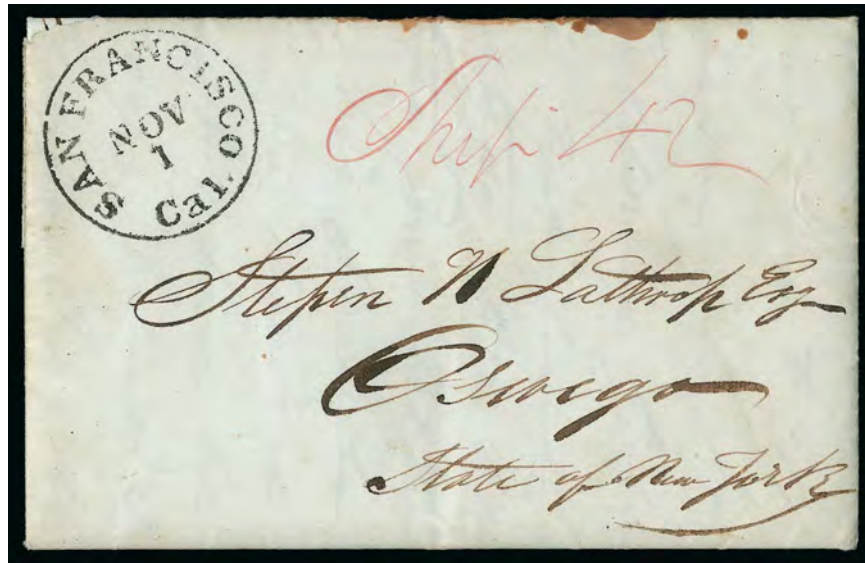 SAN FRANCISCO Cal.
NOV
1
Ship 42
Stepen N Lathrop Esq
Oswego
State of New York